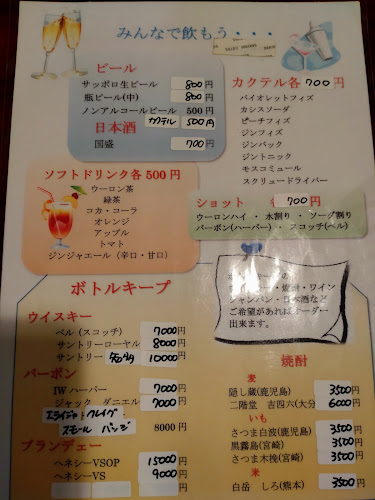 みんなで飲もう・・・
ビール
サッポロ生ビール 800円
瓶ビール(中) 800円
ノンアルコールビール 500円
カクテル 500円
日本酒
国盛 700円
カクテル各 700円
バイオレットフィズ
カシスソーダ
ピーチフィズ
ジンフィズ
ジンバック
ジントニック
モスコミュール
スクリュードライバー
ソフトドリンク各500円
ウーロン茶
緑茶
コカ・コーラ
オレンジ
アップル
トマト
ジンジャエール（辛口・甘口）
ショット 700円
ウーロンハイ・水割り・ソーダ割り
バーボン(ハーバー)・スコッチ(ベル)
ウイスキー・焼酎・ワイン
シャンパン・日本酒など
ご希望があればオーダー
出来ます。
ボトルキープ
ウイスキー
ベル（スコッチ） 7000円
サントリーローヤル 8000円
サントリー 10000円
バーボン
IWハーバー 7000円
ジャック ダニエル 7000円
エライジャクレイグ
スモールバッジ 8000円
ブランデェー
ヘネシーVSOP 15000円
ヘネシーVS 9000円
焼酎
麦
隠し蔵(鹿児島) 3500円
二階堂 吉四六(大分) 6000円
いも
さつま白波(鹿児島) 3500円
黒霧島(宮崎) 3500円
さつま木挽(宮崎) 3500円
米
白岳 しろ(熊本) 3500円